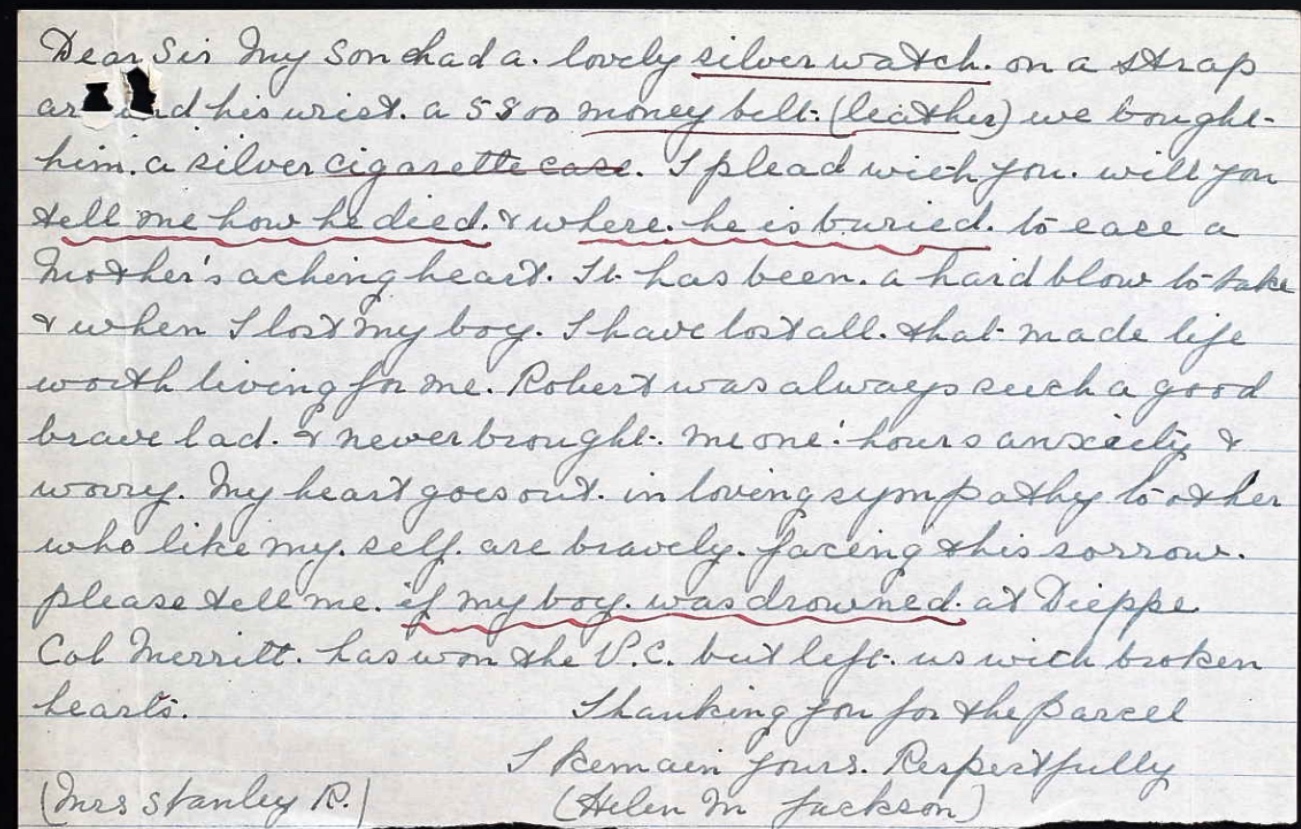 Dear Sir My Son had a. lovely silver watch. on a strap
around his wrist. a 5800 money belt. (leather) we bought.
him. a silver cigarette case. I plead with you. will you
tell me how he died. & where. he is buried. to ease a
Mother's aching heart. It has been. a hard blow to take
& when I lost my boy. I have lost all. that made life
worth living for me. Robert was always such a good
brave lad. & never brought. me one hours anxiety &
worry. My heart goes out. in loving sympathy to other
who like my. self. are bravely. facing this sorrow.
please tell me. if my boy. was drowned. at Dieppe
Col Merritt. has won the V.C. but left us with broken
hearts. Thanking you for the parcel
I Remain yours. Respectfully
(Mrs Stanley R.) (Helen M Jackson)